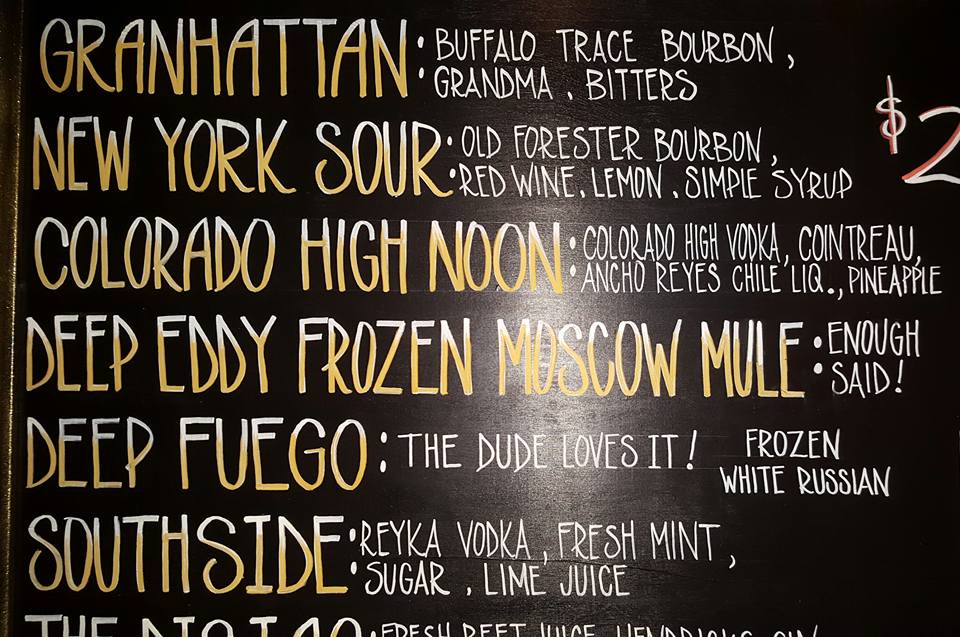 GRANHATTAN: BUFFALO TRACE BOURBON,
GRANDMA, BITTERS
$2
NEW YORK SOUR: OLD FORESTER BOURBON,
RED WINE, LEMON, SIMPLE SYRUP
COLORADO HIGH NOON: COLORADO HIGH VODKA, COINTREAU,
ANCHO REYES CHILE LIQ., PINEAPPLE
DEEP EDDY FROZEN MOSCOW MULE: ENOUGH
SAID!
DEEP FUEGO: THE DUDE LOVES IT! FROZEN
WHITE RUSSIAN
SOUTHSIDE: REYKA VODKA, FRESH MINT,
SUGAR, LIME JUICE
THE FRESH BEET JUICE,